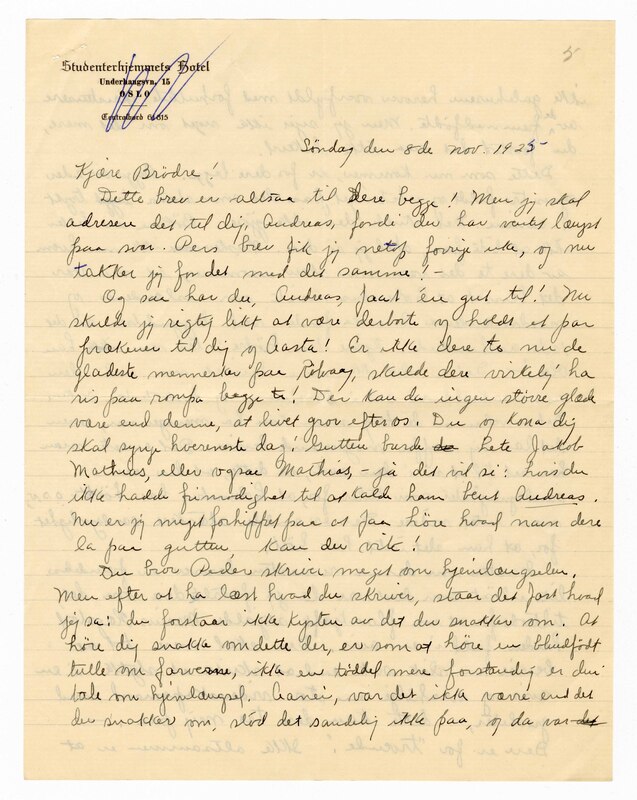 5
Studenterhjemmets Hotel
Underhaugsvn. 15
OSLO
Centralbord 61815
Søndag den 8de nov. 1925
Kjære Brödre!
Dette brev er altsaa til Dere begge! Men jeg skal
adresere det til dig, Andreas, fordi du har ventet længst
paa svar. Pers brev fik jeg netop forrige uke, og nu
takker jeg for det med det samme! —
Og saa har du, Andreas, faat én gut til! Nu
skulde jeg rigtig likt at være derborte og holdt et par
prækener til dig og Aasta! Er ikke dere to nu de
gladeste mennesker paa Rölvaag, skulde dere virkelig ha
ris paa rompa begge to! Der kan da ingen större glæde
være end denne, at livet gror efter os. Du og kona dig
skal synge hvereneste dag. Gutten burde da hete Jakob
Mathias, eller ogsaa Mathias, – ja det vil si: hvis du
ikke hadde frimodighet til at kalde ham bent Andreas.
Nu er jeg meget forhippet paa at faa höre hvad navn dere
la paa gutten, kan du vite!
Du bror Peder skriver meget om hjemlængselen.
Men efter at ha læst hvad du skriver, staar det fast hvad
jeg sa: du forstaar ikke kysten av det du snakker om. At
höre dig snakke om dette der, er som at höre en blindfödt
tulle om farverne, ikke en töddel mere forstandig er din
tale om hjemlængsel. Aanei, var det ikke værre end det
du snakker om, stod det sandelig ikke paa, og da var det